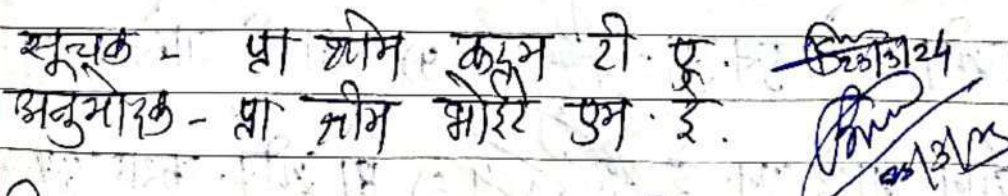 सूचक - प्रा श्रीम. कदम टी. ए. 23/3/24
अनुमोदक - प्रा श्रीम भोईटे एम. ई.